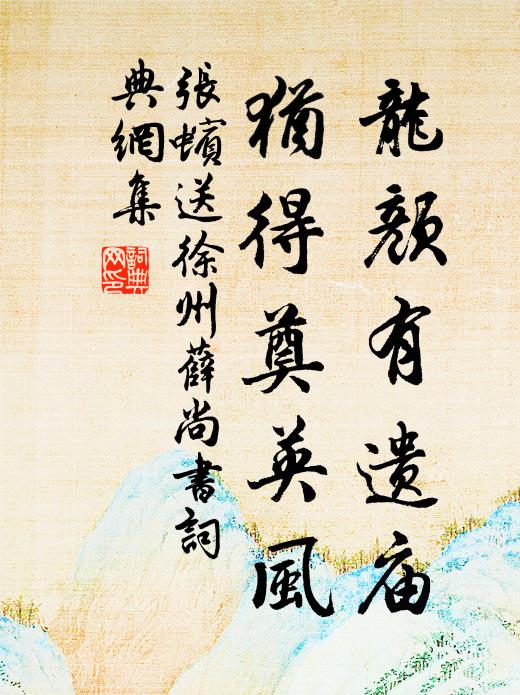 龍顔有遗庙
猶得奠英風
張蠙送徐州薛尚書詞
典網集
詞典
网印